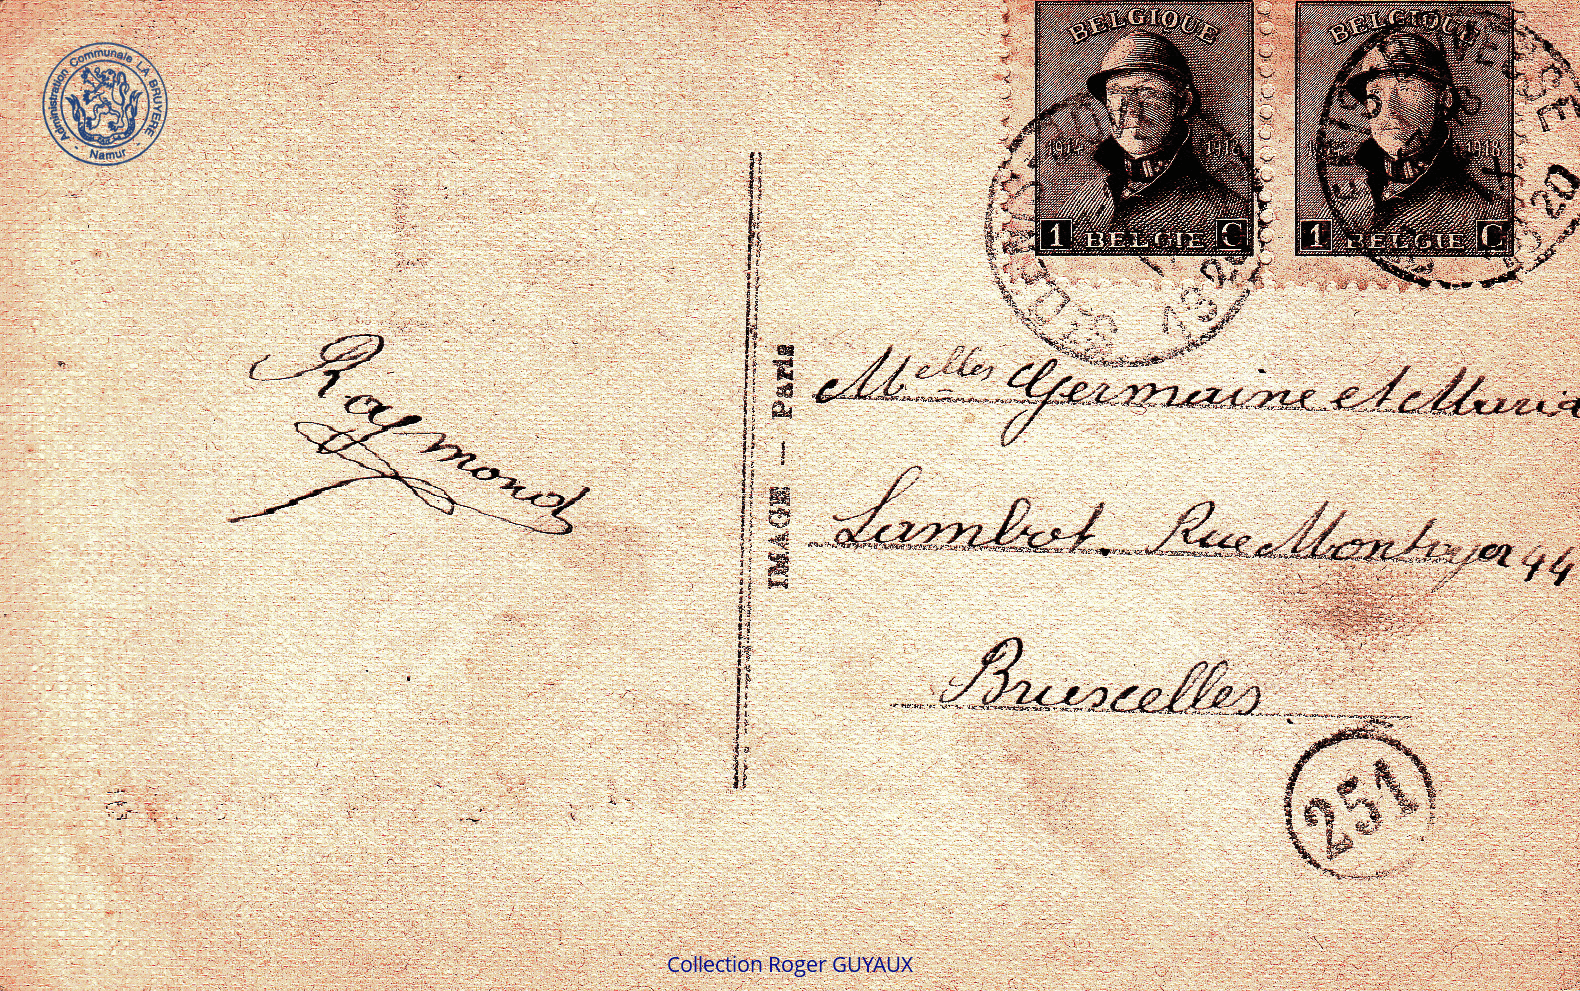 Administration Communale LA BRUYERE
- Namur -
BELGIQUE
1914 1918
1 BELGIE C
BELGIQUE
1918
1 BELGIE C
Raymond
IMAGE — Paris
Melles Germaine et Maria
Lambot. Rue Montoyer 44
Bruxelles
251
Collection Roger GUYAUX